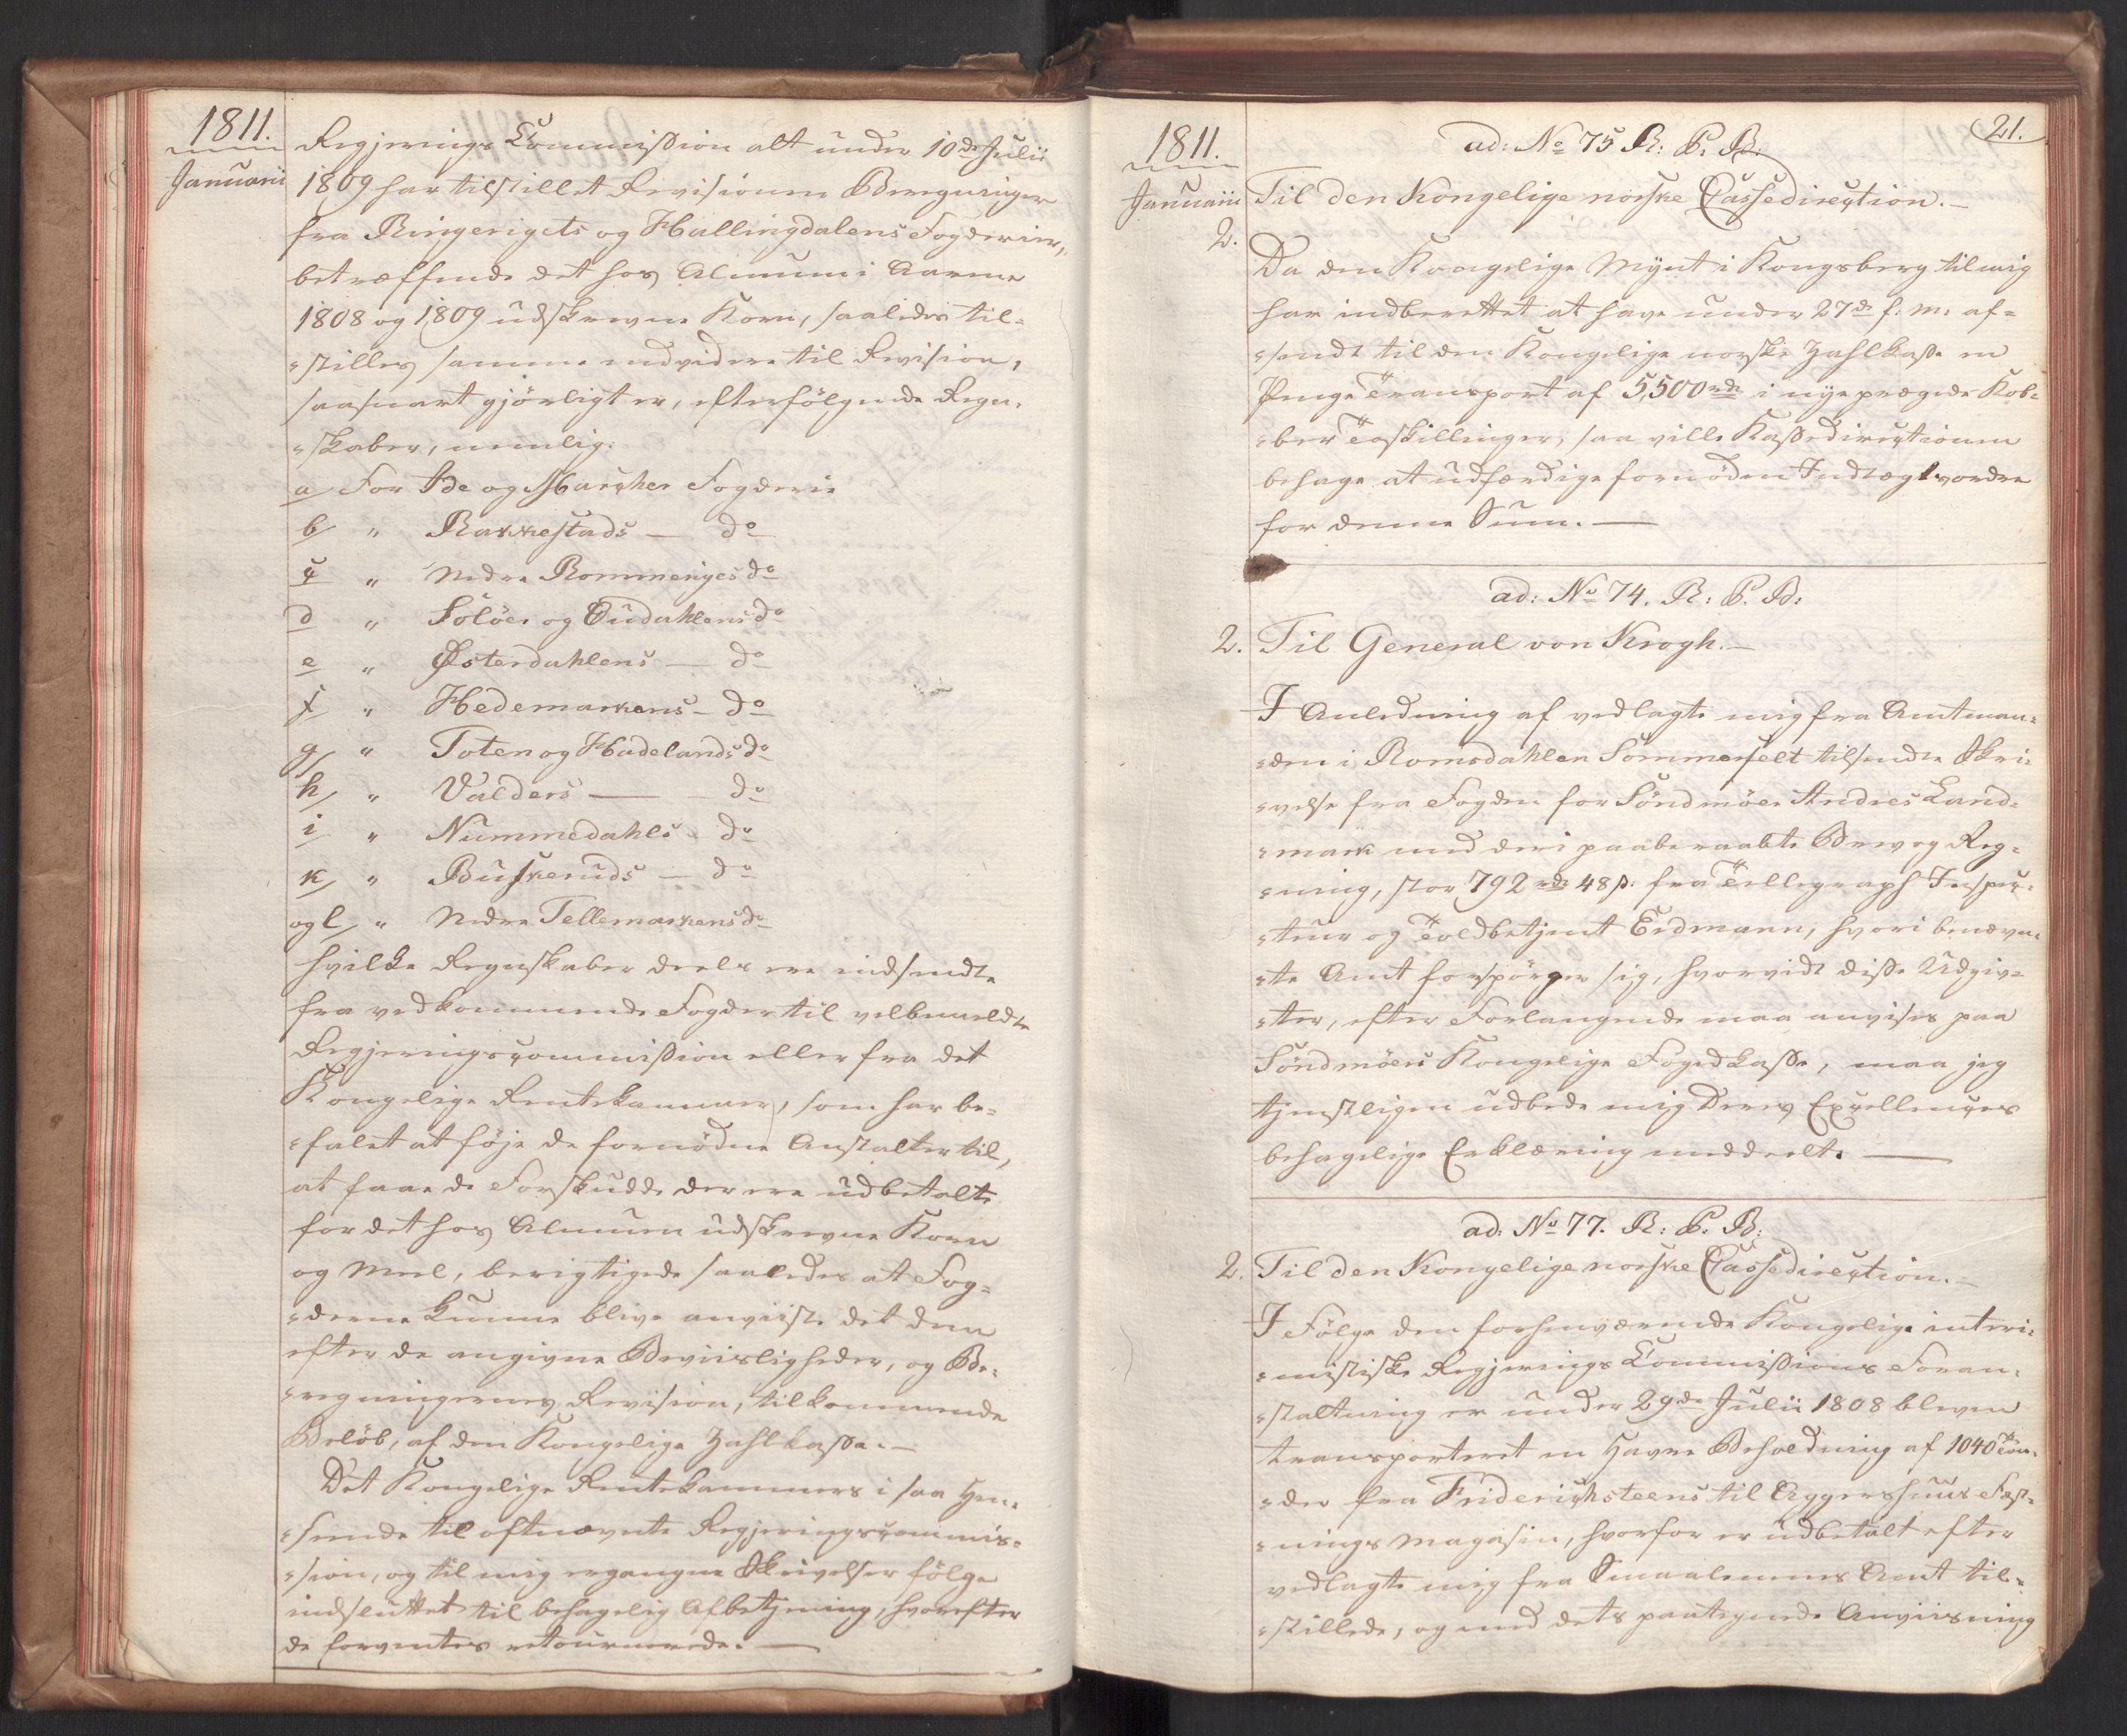 1811.
Januarii
Regjerings Commission alt under 10de Julii
1809 har tilstillet Revisionen Beregninger
fra Ringerigets og Hallingdalens Fogderier,
betræffende det hos Almuen i Aarene
1808 og 1809 udskrevne Korn, saaledes til-
-stilles samme endvidere til Revision,
saasnart gjörligt er, efterfölgende Regn-
-skaber, nemlig:
a/ For Ide og Marcher Fogderie
b/ " Rakkestads — do
c " Nedre Rommeriges do
d " Solöer og Oudahlens do
e " Østerdahlens — do
f " Hedemarkens - do
g/ " Toten og Hadelands do
h/ " Valders — do
i " Nummedahls - do
k/ " Buskeruds — do
og l/ " Nedre Tellemarkens do
hvilke Regnskaber deels ere indsendte
fra vedkommende Fogder til velbemeldte
Regjeringscommission eller fra det
Kongelige Rentekammer, som har be-
-falet at föje de fornödne Anstalter til,
at faae de Forskudde der ere udbetalte
for det hos Almuen udskrevne Korn
og Meel, berigtigede saaledes at Fog-
-derne kunne blive anviiste det dem
efter de angivne Beviisligheder, og Be-
-regningernes Revision, tilkommende
Belöb, af den Kongelige Zahlkasse. —
Det Kongelige Rentekammers i saa Hen-
-seende til oftnævnte Regjeringscommis-
-sion, og til mig ergangne Skrivelser fölge
indsluttet til behagelig Afbetjening, hvorefter
de forventes retournerede. —
21.
1811.
Januarii
ad: No 75 R: P. B:
Til den Kongelige norske Cassedirection. —
2.
Da den Kongelige Mynt i Kongsberg til mig
har indberettet at have under 27de f: M: af-
-sendt til den Kongelige norske Zahlkasse en
Penge Transport af 5,500 rdr i nye prægede Kob-
-ber Toskillinger, saa ville Kassedirectionen
behage at udfærdige fornöden Indtægtsordre
for denne Sum. —
ad: No 74. R: P. B:
2. Til General von Krogh. —
I Anledning af vedlagte mig fra Amtman-
-den i Romsdahlen Sommerfelt tilsendte Skri-
-velse fra Fogden for Söndmöer Andres Land-
-mark med deri paaberaabte Brev og Reg-
-ning, stor 792 rdr 48 s. fra Tellegraph Inspec-
-teur og Toldbetjent Erdmann, hvori benævn-
-te Amt forspörger sig, hvorvidt disse Udgiv-
-ter, efter Forlangende maa anvises paa
Söndmöers Kongelige Fogedkasse, maa jeg
tjenstligen udbede mig Deres Excellences
behagelige Erklæring meddeelt. —
ad: No 77. R: P. B:
2. Til den Kongelige norske Cassedirection. —
I Fölge den forhenværende Kongelige interi-
-mistiske Regjerings Commissions Foran-
-staltning er under 29de Julii 1808 bleven
transporteret en Havre Beholdning af 1040 Tön-
-der fra Friderichsteens til Aggershuus Fæst-
-nings Magasin, hvorfor er udbetalt efter
vedlagte mig fra Smaalenenes Amt til-
-stillede, og med dets paategnede Anviisning